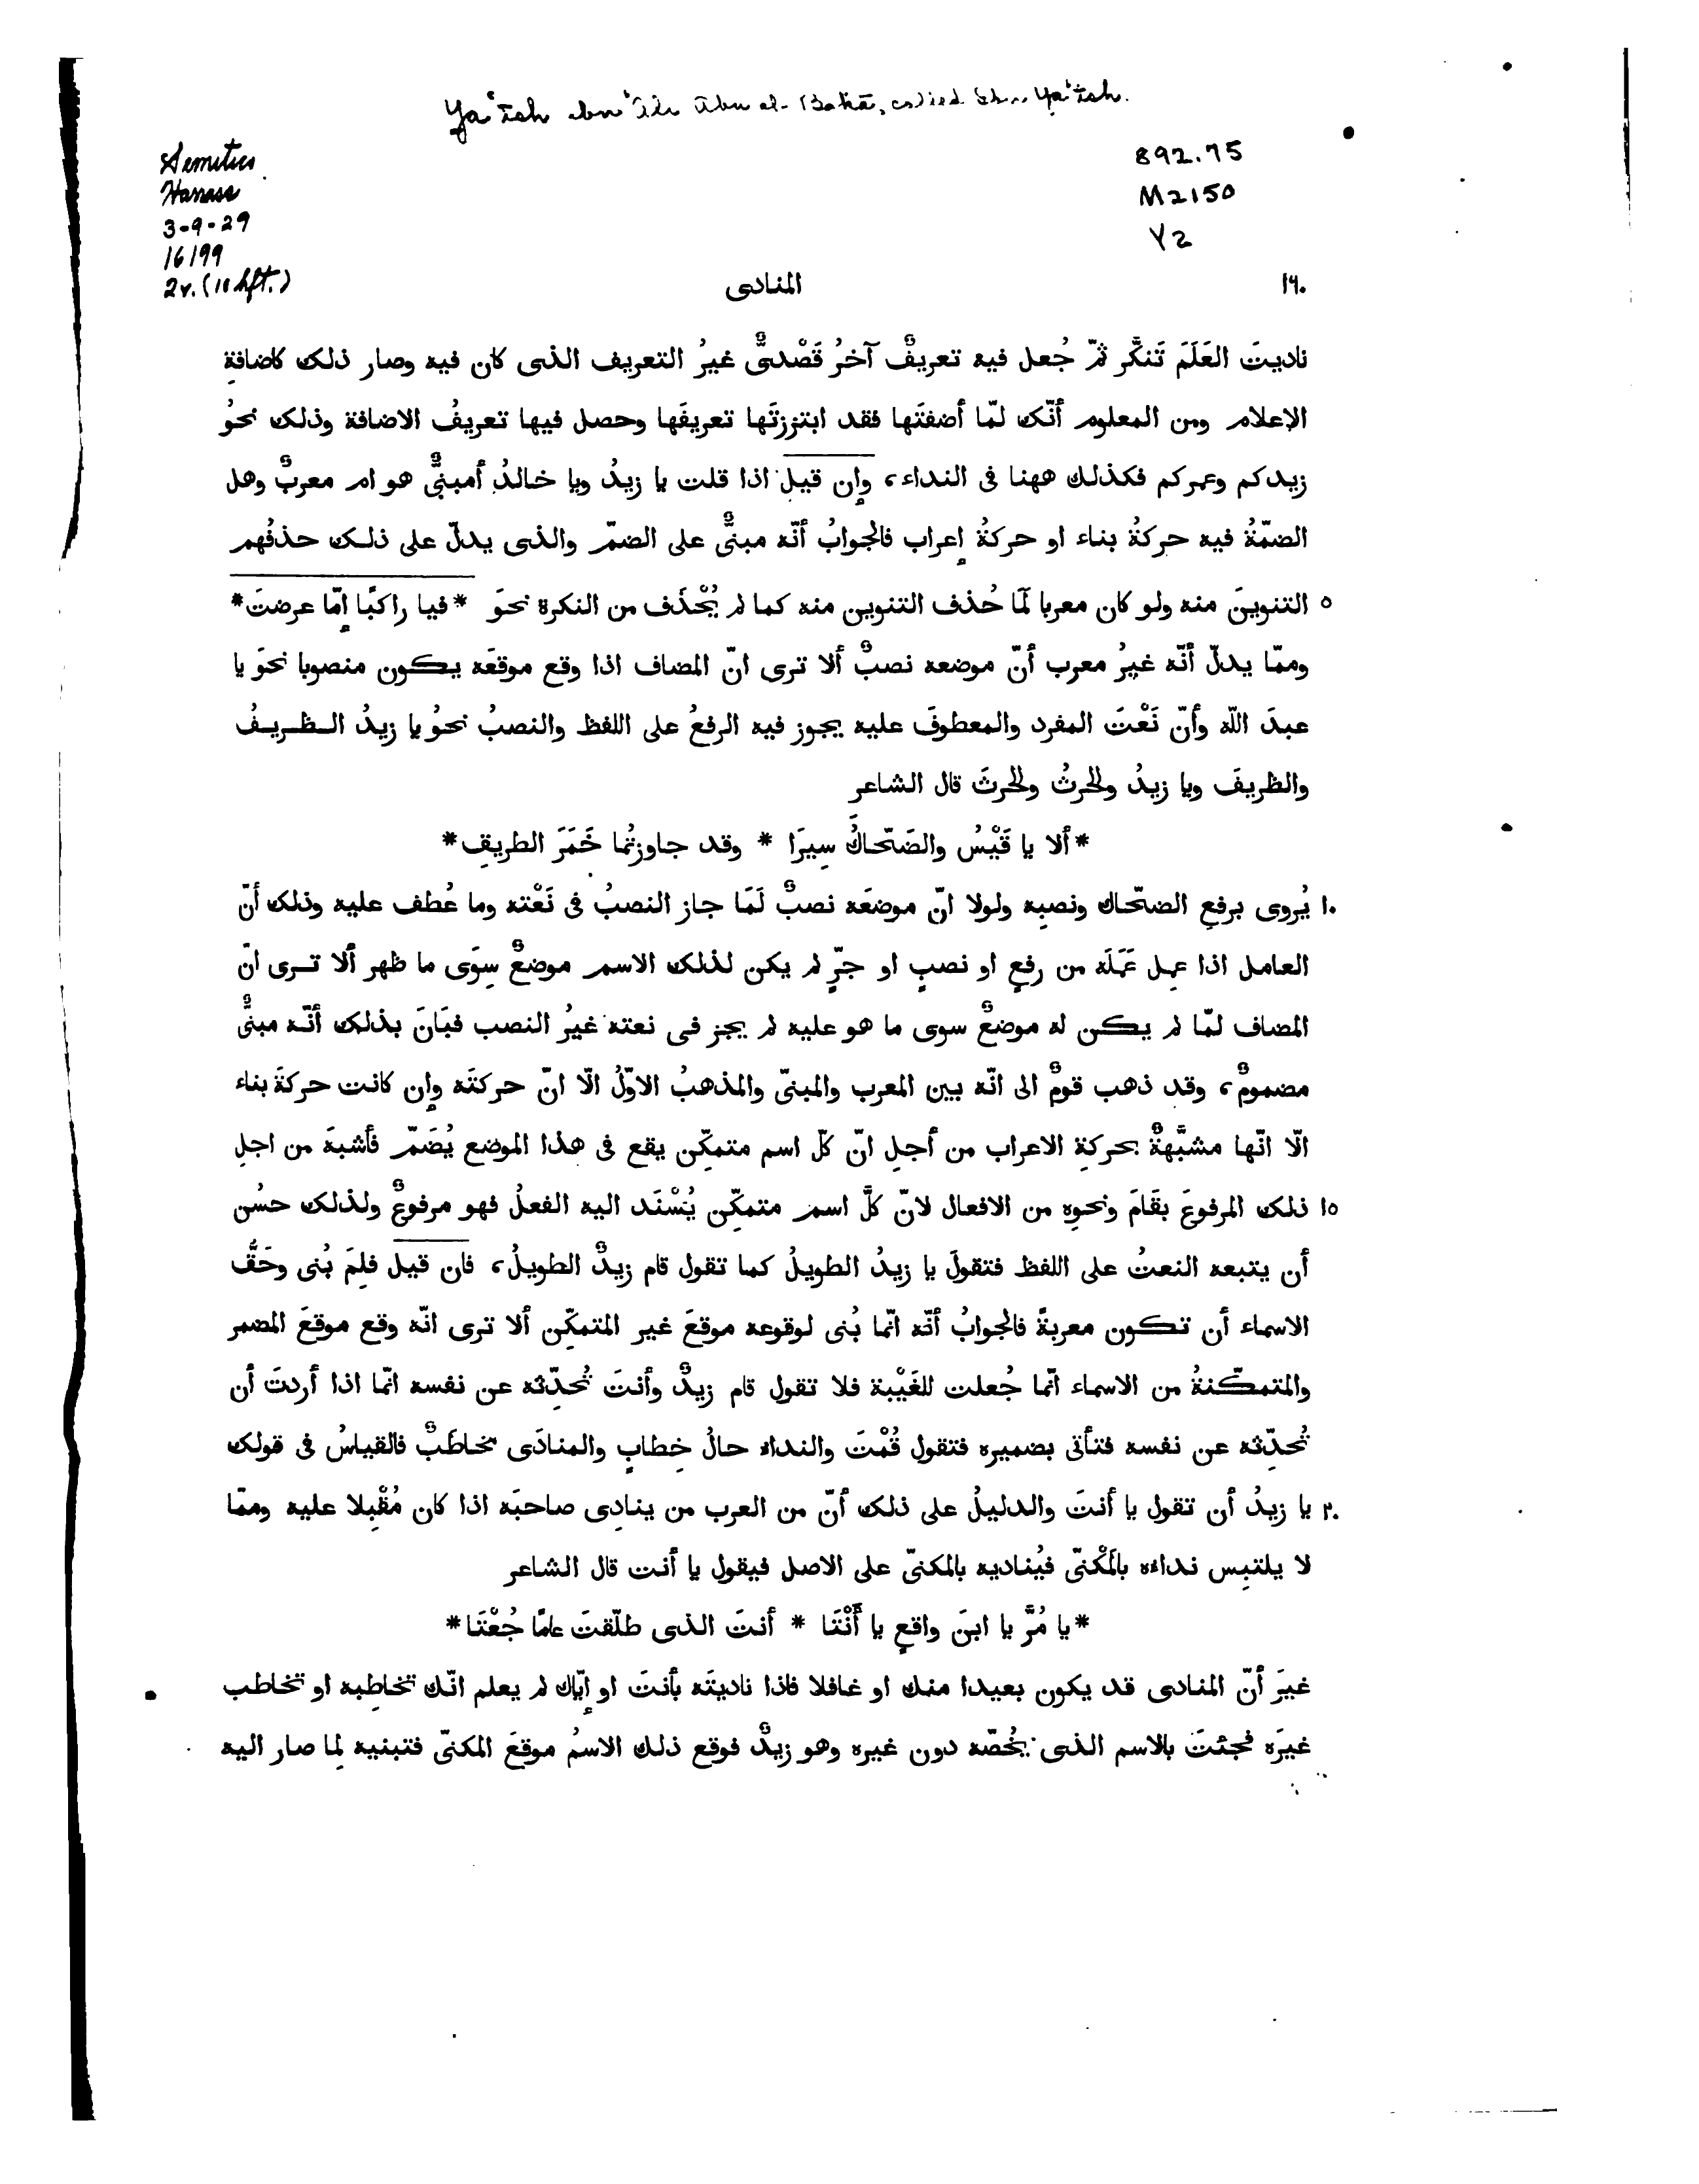 Ya'ish ibn 'Ali Abu el-Baka, called Ibn Ya'ish.
Semitics
892.75
M2150
3-9-29
Y2
16199
2v. (10 hft.)
١٦٠
المنادى
ناديتَ العَلَمَ تَنكَّر ثمّ جُعل فيه تعريفٌ آخرُ قَصْدىٌّ غيرُ التعريف الذى كان فيه وصار ذلك كاضافةِ
الإعلام ومن المعلوم أنّك لمّا أضفتَها فقد ابتززتَها تعريفَها وحصل فيها تعريفُ الاضافة وذلك نحوُ
زيدكم وعمركم فكذلك ههنا فى النداء، وإن قيل اذا قلت يا زيدُ ويا خالدُ أمبنىٌّ هو ام معربٌ وهل
الضمّةُ فيه حركةُ بناء او حركةُ إعراب فالجوابُ أنّه مبنىٌّ على الضمّ والذى يدلّ على ذلك حذفُهم
٥ التنوينَ منه ولو كان معربا لَمَا حُذف التنوين منه كما لم يُحْذَف من النكرة نحوَ *فيا راكبًا إمّا عرضتَ*
وممّا يدلّ أنّه غيرُ معرب أنّ موضعه نصبٌ ألا ترى انّ المضاف اذا وقع موقعَه يكون منصوبا نحوَ يا
عبدَ اللّه وأنّ نَعْتَ المفرد والمعطوفَ عليه يجوز فيه الرفعُ على اللفظ والنصبُ نحوُ يا زيدُ الظريفُ
والظريفَ ويا زيدُ والحرثُ والحرثَ قال الشاعر
*ألا يا قَيْسُ والضَحّاكُ سِيرَا * وقد جاوزتُما خَمَرَ الطريقِ*
١٠ يُروى برفعِ الضحّاك ونصبِه ولولا انّ موضعَه نصبٌ لَمَا جاز النصبُ فى نَعْته وما عُطف عليه وذلك أنّ
العامل اذا عمِل عَمَلَه من رفعٍ او نصبٍ او جرٍّ لم يكن لذلك الاسم موضعٌ سِوَى ما ظهر ألا ترى انّ
المضاف لمّا لم يكن له موضعٌ سوى ما هو عليه لم يجز فى نعته غيرُ النصب فبَانَ بذلك أنّه مبنىٌّ
مضمومٌ، وقد ذهب قومٌ الى انّه بين المعرب والمبنىّ والمذهبُ الاوّلُ الّا انّ حركتَه وإن كانت حركةَ بناء
الّا انّها مشبَّهةٌ بحركةِ الاعراب من أجلِ انّ كلّ اسم متمكّن يقع فى هذا الموضع يُضَمّ فأشبهَ من اجلِ
١٥ ذلك المرفوعَ بقَامَ ونحوِه من الافعال لانّ كلَّ اسم متمكّن يُسْنَد اليه الفعلُ فهو مرفوعٌ ولذلك حسُن
أن يتبعه النعتُ على اللفظ فتقولَ يا زيدُ الطويلُ كما تقول قام زيدٌ الطويلُ، فان قيل فلِمَ بُنى وحَقُّ
الاسماء أن تكون معربةً فالجوابُ أنّه انّما بُنى لوقوعه موقعَ غير المتمكّن ألا ترى انّه وقع موقعَ المضمر
والمتمكّنةُ من الاسماء انّما جُعلت للغَيْبة فلا تقول قام زيدٌ وأنتَ تُحدّثه عن نفسه انّما اذا أردتَ أن
تُحدّثه عن نفسه فتأتى بضميره فتقول قُمْتَ والنداء حالُ خِطابٍ والمنادَى مخاطَبٌ فالقياسُ فى قولك
٢٠ يا زيدُ أن تقول يا أنتَ والدليلُ على ذلك أنّ من العرب من ينادِى صاحبَه اذا كان مُقْبِلا عليه وممّا
لا يلتبِس نداءه بالمَكْنىّ فيُناديه بالمكنىّ على الاصل فيقول يا أنت قال الشاعر
*يا مُرَّ يا ابنَ واقعٍ يا أَنْتَا * أنتَ الذى طلّقتَ عامًا جُعْتَا*
غيرَ أنّ المنادى قد يكون بعيدا منك او غافلا فاذا ناديتَه بأنتَ او إيّاك لم يعلم انّك تخاطبه او تخاطب
غيرَه فجئتَ بالاسم الذى يخُصّه دون غيره وهو زيدٌ فوقع ذلك الاسمُ موقعَ المكنىّ فتبنيه لِما صار اليه